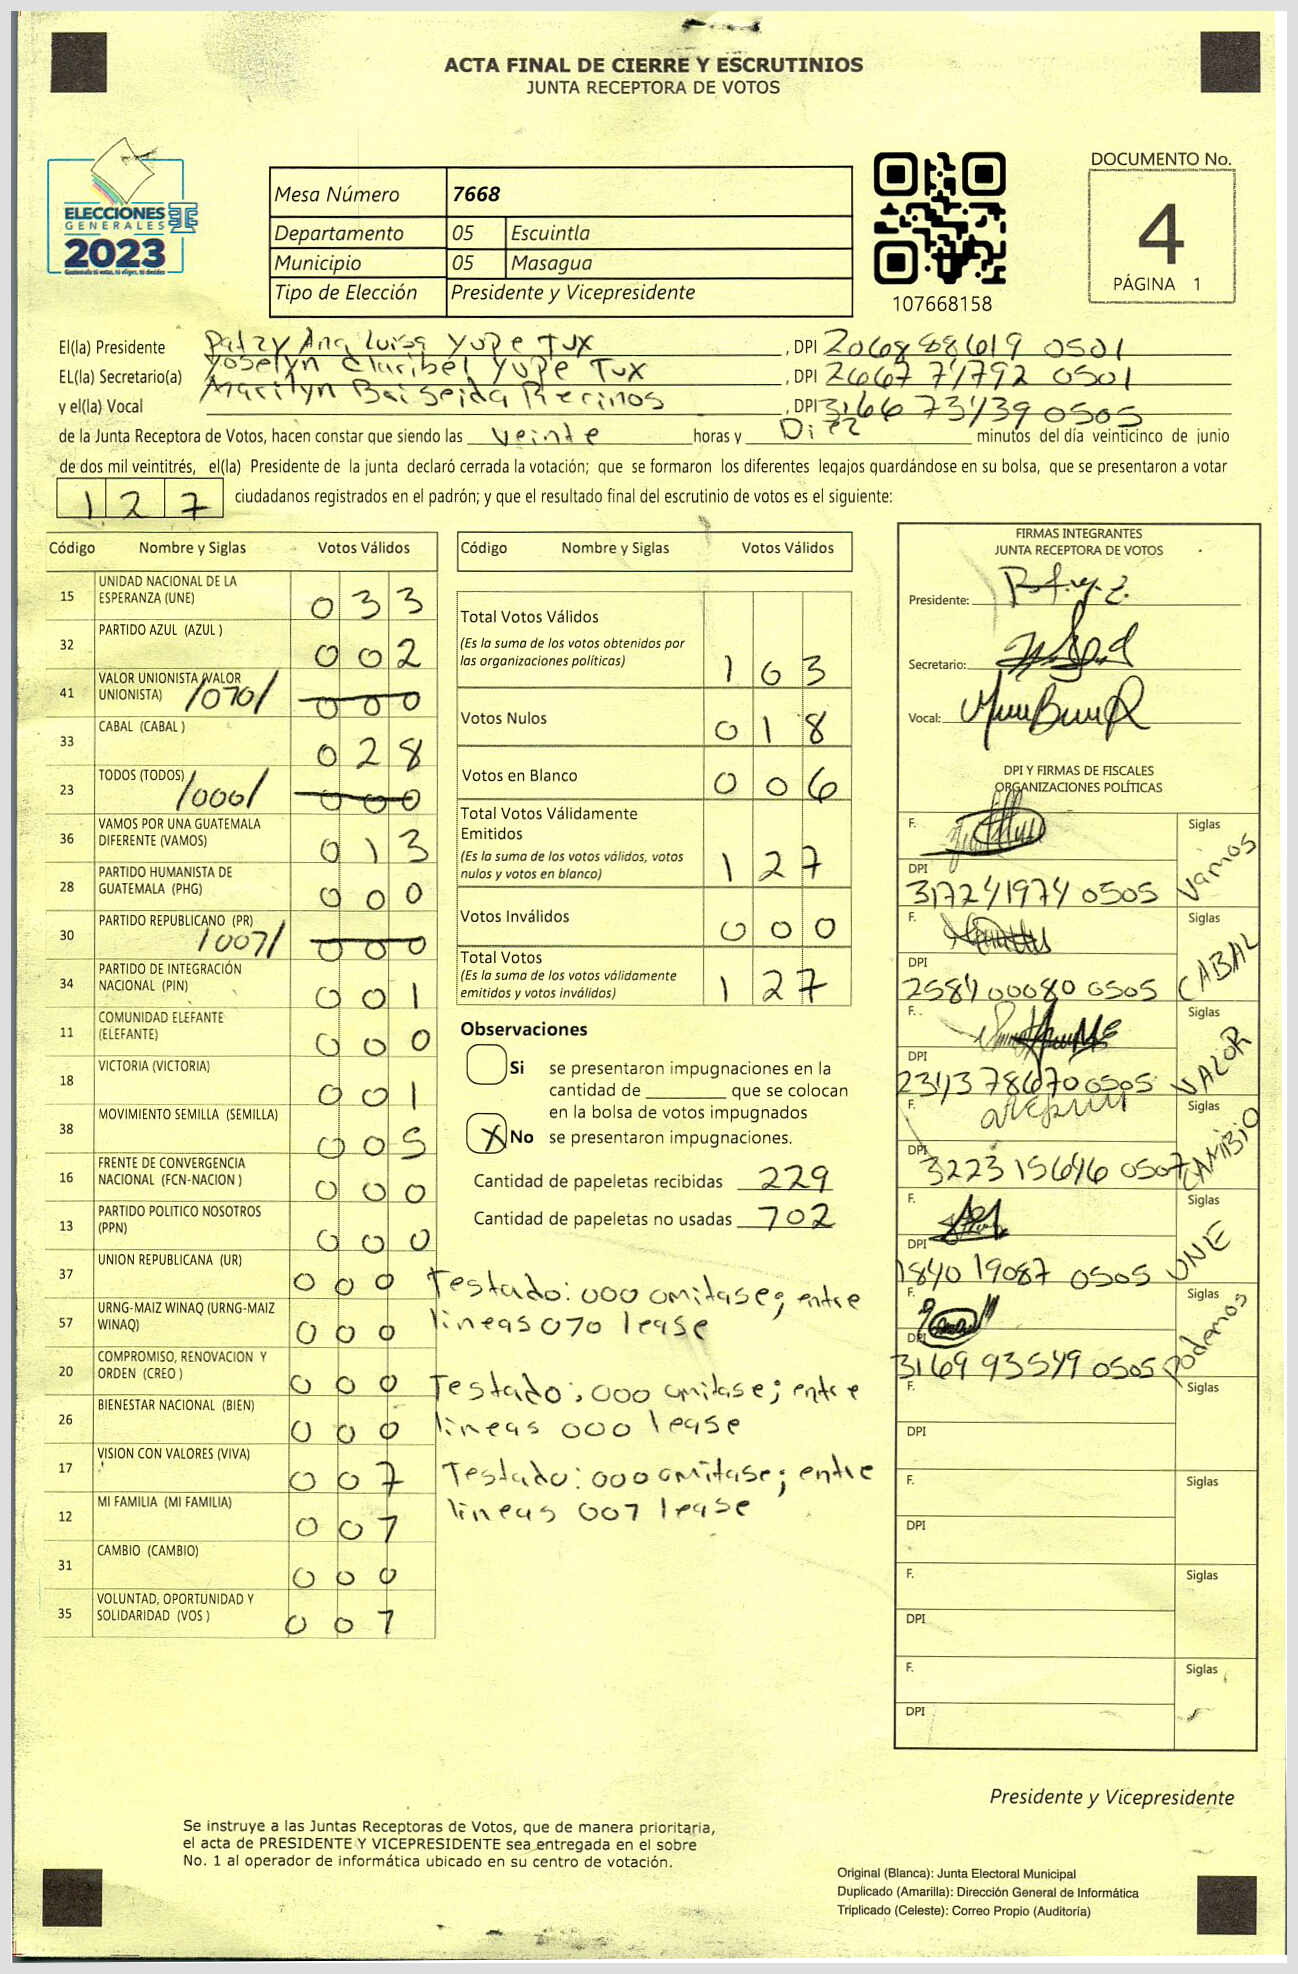 ACTA FINAL DE CIERRE Y ESCRUTINIOS
JUNTA RECEPTORA DE VOTOS
ELECCIONES
GENERALES
2023
Guatemala tú votas, tú eliges, tú decides
Mesa Número 7668
Departamento 05 Escuintla
Municipio 05 Masagua
Tipo de Elección Presidente y Vicepresidente
107668158
DOCUMENTO No.
4
PÁGINA 1
El(la) Presidente Patzy Ana Luisa Yupe Tux, DPI 206888619 0501
EL(la) Secretario(a) Yoselyn Claribel Yupe Tux, DPI 266771792 0501
y el(la) Vocal Marilyn Recinos, DPI 316673439 0505
de la Junta Receptora de Votos, hacen constar que siendo las veinte horas y Diez minutos del día veinticinco de junio
de dos mil veintitrés, el(la) Presidente de la junta declaró cerrada la votación; que se formaron los diferentes legajos guardándose en su bolsa, que se presentaron a votar
127 ciudadanos registrados en el padrón; y que el resultado final del escrutinio de votos es el siguiente:
Código Nombre y Siglas Votos Válidos
15 UNIDAD NACIONAL DE LA ESPERANZA (UNE) 033
32 PARTIDO AZUL (AZUL ) 002
41 VALOR UNIONISTA (VALOR UNIONISTA) /070/ 000
33 CABAL (CABAL ) 028
23 TODOS (TODOS) /000/ 000
36 VAMOS POR UNA GUATEMALA DIFERENTE (VAMOS) 013
28 PARTIDO HUMANISTA DE GUATEMALA (PHG) 000
30 PARTIDO REPUBLICANO (PR) /007/ 000
34 PARTIDO DE INTEGRACIÓN NACIONAL (PIN) 001
11 COMUNIDAD ELEFANTE (ELEFANTE) 000
18 VICTORIA (VICTORIA) 001
38 MOVIMIENTO SEMILLA (SEMILLA) 005
16 FRENTE DE CONVERGENCIA NACIONAL (FCN-NACION ) 000
13 PARTIDO POLITICO NOSOTROS (PPN) 000
37 UNION REPUBLICANA (UR) 000
57 URNG-MAIZ WINAQ (URNG-MAIZ WINAQ) 000
20 COMPROMISO, RENOVACION Y ORDEN (CREO ) 000
26 BIENESTAR NACIONAL (BIEN) 000
17 VISION CON VALORES (VIVA) 007
12 MI FAMILIA (MI FAMILIA) 007
31 CAMBIO (CAMBIO) 000
35 VOLUNTAD, OPORTUNIDAD Y SOLIDARIDAD (VOS ) 007
Código Nombre y Siglas Votos Válidos
Total Votos Válidos 103
(Es la suma de los votos obtenidos por
las organizaciones políticas)
Votos Nulos 018
Votos en Blanco 006
Total Votos Válidamente
Emitidos 127
(Es la suma de los votos válidos, votos
nulos y votos en blanco)
Votos Inválidos 000
Total Votos 127
(Es la suma de los votos válidamente
emitidos y votos inválidos)
Observaciones
Si se presentaron impugnaciones en la
cantidad de ________ que se colocan
en la bolsa de votos impugnados
X No se presentaron impugnaciones.
Cantidad de papeletas recibidas 229
Cantidad de papeletas no usadas 702
Testado: 000 omitase; entre
lineas 070 lease
Testado: 000 omitase; entre
lineas 000 lease
Testado: 000 omitase; entre
lineas 007 lease
FIRMAS INTEGRANTES
JUNTA RECEPTORA DE VOTOS
Presidente:
Secretario:
Vocal:
DPI Y FIRMAS DE FISCALES
ORGANIZACIONES POLÍTICAS
F. Siglas Vamos
DPI 317241974 0505
F. Siglas CABAL
DPI 258400080 0505
F. Siglas VALOR
DPI 234378670 0505
F. Siglas CAMBIO
DPI 322315646 0507
F. Siglas UNE
DPI 1840 19087 0505
F. Siglas Podemos
DPI 3169 93549 0505
F. Siglas
DPI
F. Siglas
DPI
F. Siglas
DPI
F. Siglas
DPI
Presidente y Vicepresidente
Se instruye a las Juntas Receptoras de Votos, que de manera prioritaria,
el acta de PRESIDENTE Y VICEPRESIDENTE sea entregada en el sobre
No. 1 al operador de informática ubicado en su centro de votación.
Original (Blanca): Junta Electoral Municipal
Duplicado (Amarilla): Dirección General de Informática
Triplicado (Celeste): Correo Propio (Auditoría)